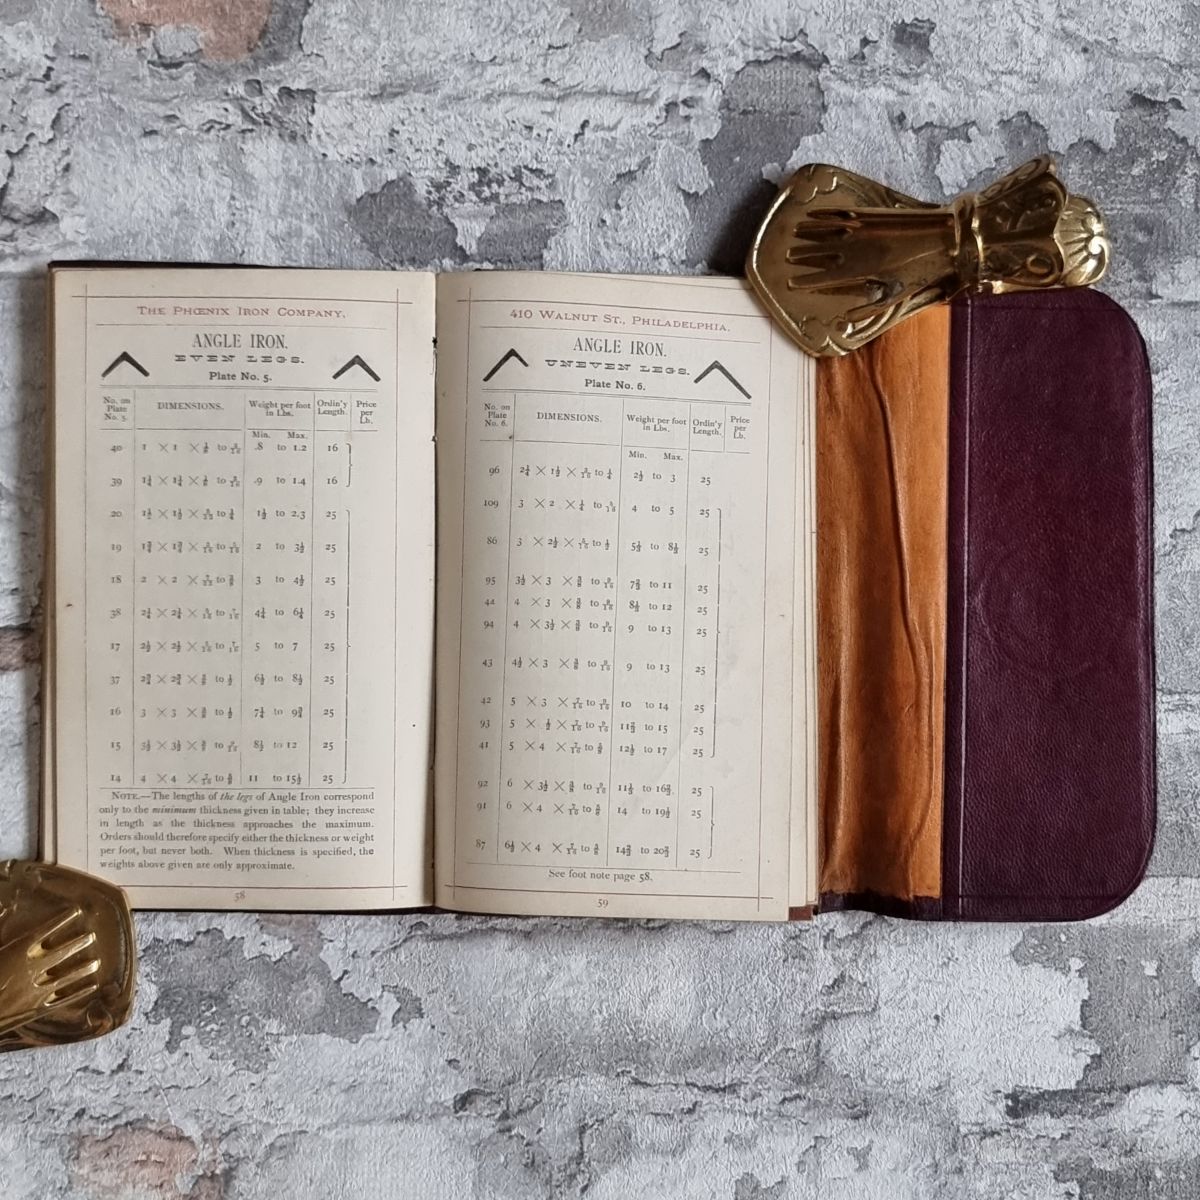 THE PHŒNIX IRON COMPANY,
ANGLE IRON.
EVEN LEGS.
Plate No. 5.
No. on Plate No. 5. DIMENSIONS. Weight per foot in Lbs. Ordin'y Length. Price per Lb.
Min. Max.
40 1 × 1 × ⅛ to 3/16 .8 to 1.2 16
39 1¼ × 1¼ × ⅛ to 3/16 .9 to 1.4 16
20 1½ × 1½ × to ¼ 1½ to 2.3 25
19 1¾ × 1¾ × 3/16 to 5/16 2 to 3½ 25
18 2 × 2 × to ⅜ 3 to 4½ 25
38 2¼ × 2¼ × to 7/16 4¼ to 6¼ 25
17 2½ × 2½ × 5/16 to 7/16 5 to 7 25
37 2¾ × 2¾ × ⅜ to ½ 6½ to 8½ 25
16 3 × 3 × ⅜ to ½ 7¼ to 9¾ 25
15 3½ × 3½ × ⅜ to 9/16 8½ to 12 25
14 4 × 4 × 7/16 to ⅝ 11 to 15½ 25
NOTE.—The lengths of the legs of Angle Iron correspond
only to the minimum thickness given in table; they increase
in length as the thickness approaches the maximum.
Orders should therefore specify either the thickness or weight
per foot, but never both. When thickness is specified, the
weights above given are only approximate.
58
410 WALNUT ST., PHILADELPHIA.
ANGLE IRON.
UNEVEN LEGS.
Plate No. 6.
No. on Plate No. 6. DIMENSIONS. Weight per foot in Lbs. Ordin'y Length. Price per Lb.
Min. Max.
96 2¼ × 1½ × 3/16 to ¼ 2½ to 3 25
109 3 × 2 × ¼ to 5/16 4 to 5 25
86 3 × 2½ × 5/16 to ½ 5⅓ to 8⅓ 25
95 3½ × 3 × ⅜ to 9/16 7⅔ to 11 25
44 4 × 3 × ⅜ to 9/16 8⅓ to 12 25
94 4 × 3½ × ⅜ to 9/16 9 to 13 25
43 4½ × 3 × ⅜ to 9/16 9 to 13 25
42 5 × 3 × 7/16 to 9/16 10 to 14 25
93 5 × ½ × 7/16 to 9/16 11⅔ to 15 25
41 5 × 4 × 7/16 to ⅝ 12½ to 17 25
92 6 × 3½ × ⅜ to 9/16 11⅓ to 16⅔ 25
91 6 × 4 × 7/16 to ⅝ 14 to 19½ 25
87 6½ × 4 × 7/16 to ⅝ 14⅔ to 20⅔ 25
See foot note page 58.
59